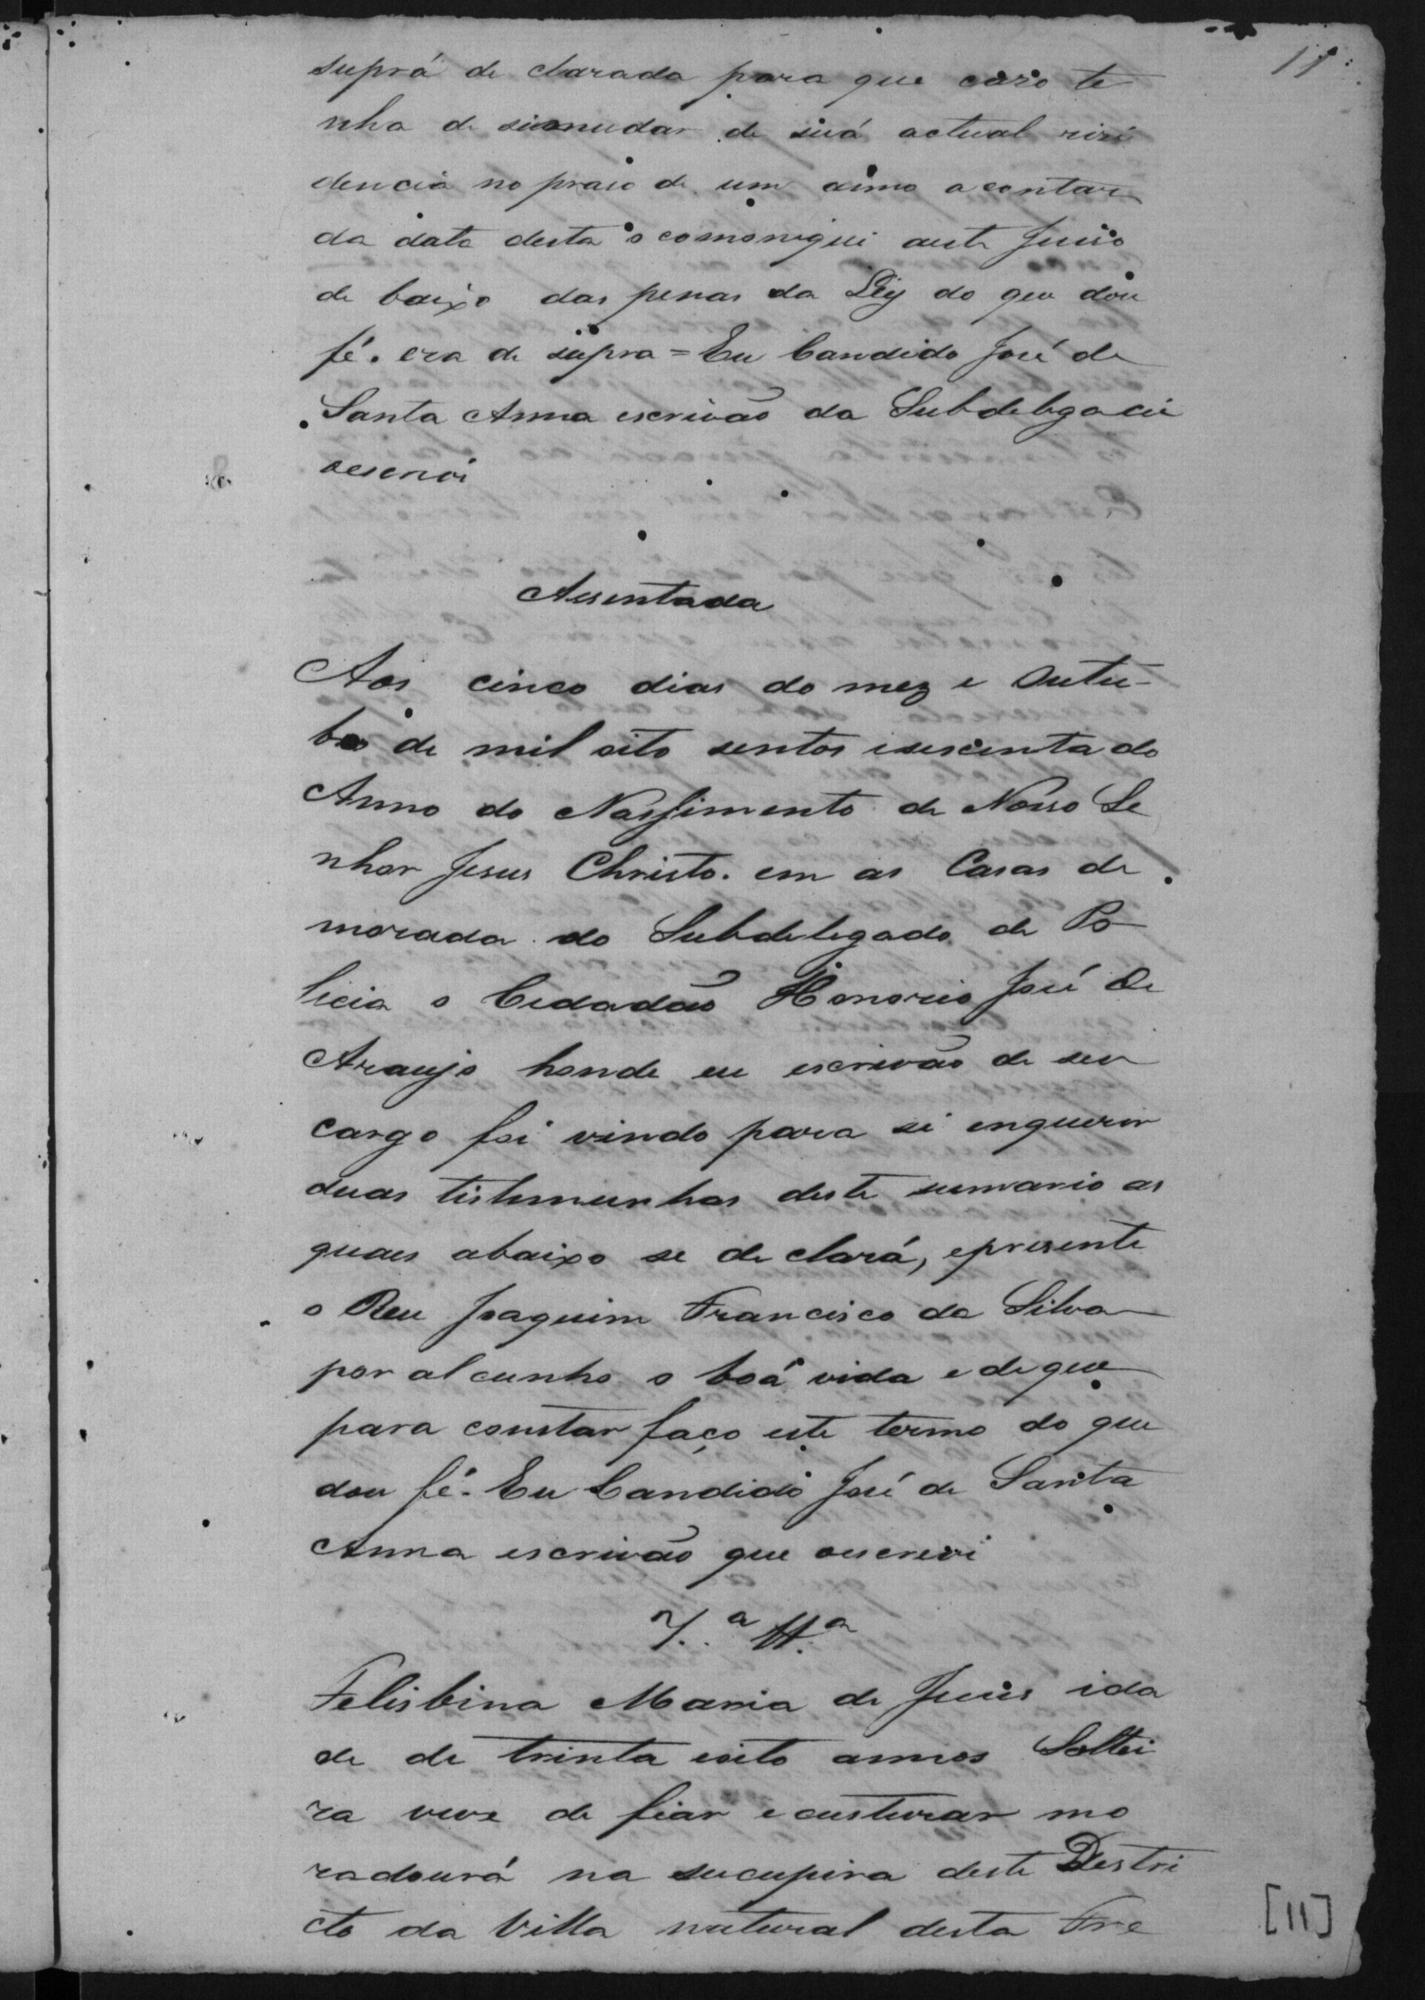 11
suprá de clarada para que cazo te
nha de simudar de suá actual rizi
dencia no praso de um anno acontar
da data desta o comoniqui aeste Juizo
de baixo das penas da Ley do que dou
fé. era de supra = Eu Candido José de
Santa Anna escrivão da Subdelegacia
oescrevi
Assentada
Aos cinco dias do mez e Outu-
bro de mil oito sentos esescenta do
Anno do Nassimento de Nosso Se
nhor Jesus Christo. em as Casas de
morada do Subdelegado de Po
licia o Cedadão Honorio José de
Araujo honde eu escrivão de seu
cargo foi vindo para si enquerir
duas tistimunhas deste sumario as
quaes abaixo se de clará, epresente
o Reu Joaquim Francisco da Silva
por alcunho o boá vida e de que
para constar faço este termo do que
dou fé. Eu Candido José de Santa
Anna escrivão que oescrevi
7.ª tt.ª
Felisbina Maria de Jesus ida
de de trinta eoito annos Soltei
ra veve de fiar ecusturar mo
radourá na sucupira deste Destri
cto da Villa natural desta Fre
[11]